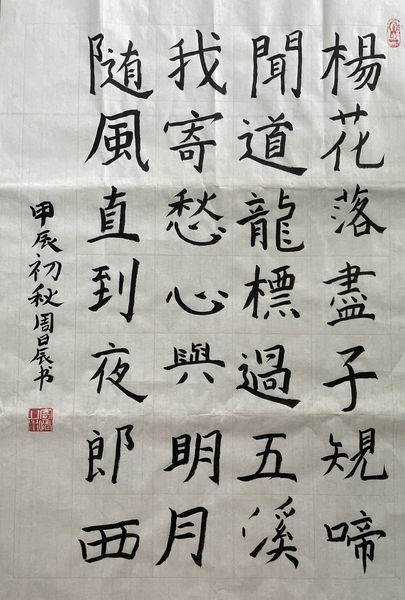 楊花落盡子規啼
聞道龍標過五溪
我寄愁心與明月
随風直到夜郎西
甲辰初秋周日辰书